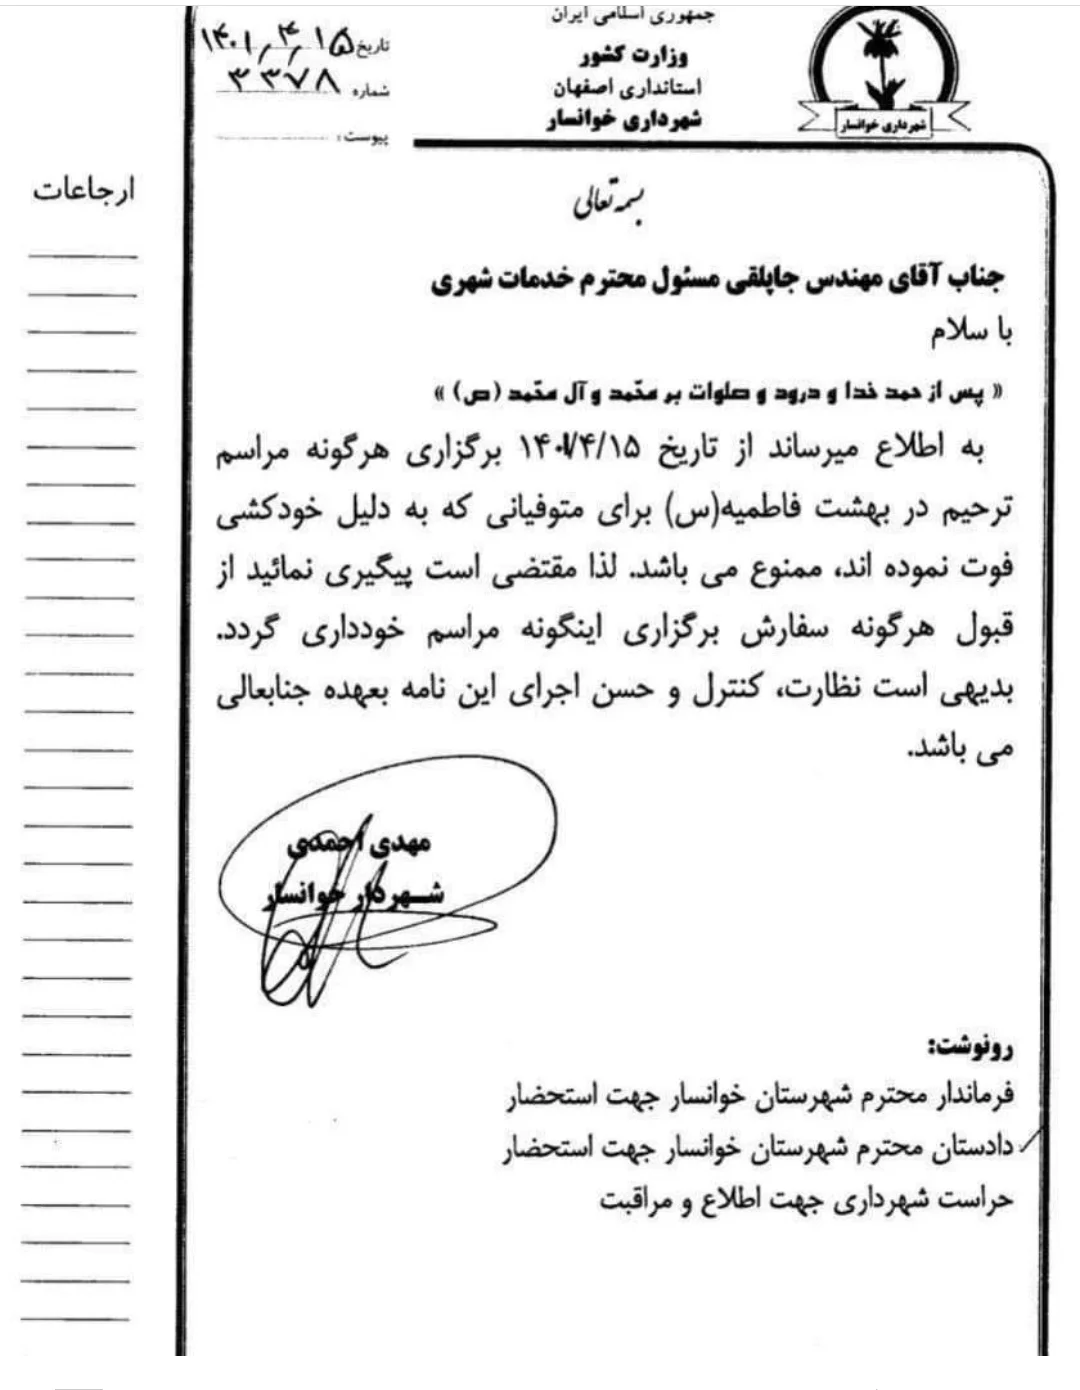 جمهوری اسلامی ایران
وزارت کشور
استانداری اصفهان
شهرداری خوانسار
شهرداری خوانسار
تاریخ ۱۴۰۱/۴/۱۵
شماره ۳۳۷۸
پیوست:
ارجاعات
بسمه تعالی
جناب آقای مهندس جاپلقی مسئول محترم خدمات شهری
با سلام
« پس از حمد خدا و درود و صلوات بر محّمد و آل محّمد (ص) »
به اطلاع میرساند از تاریخ ۱۴۰۱/۴/۱۵ برگزاری هرگونه مراسم
ترحیم در بهشت فاطمیه(س) برای متوفیانی که به دلیل خودکشی
فوت نموده اند، ممنوع می باشد. لذا مقتضی است پیگیری نمائید از
قبول هرگونه سفارش برگزاری اینگونه مراسم خودداری گردد.
بدیهی است نظارت، کنترل و حسن اجرای این نامه بعهده جنابعالی
می باشد.
مهدی احمدی
شهردار خوانسار
رونوشت:
فرماندار محترم شهرستان خوانسار جهت استحضار
دادستان محترم شهرستان خوانسار جهت استحضار
حراست شهرداری جهت اطلاع و مراقبت